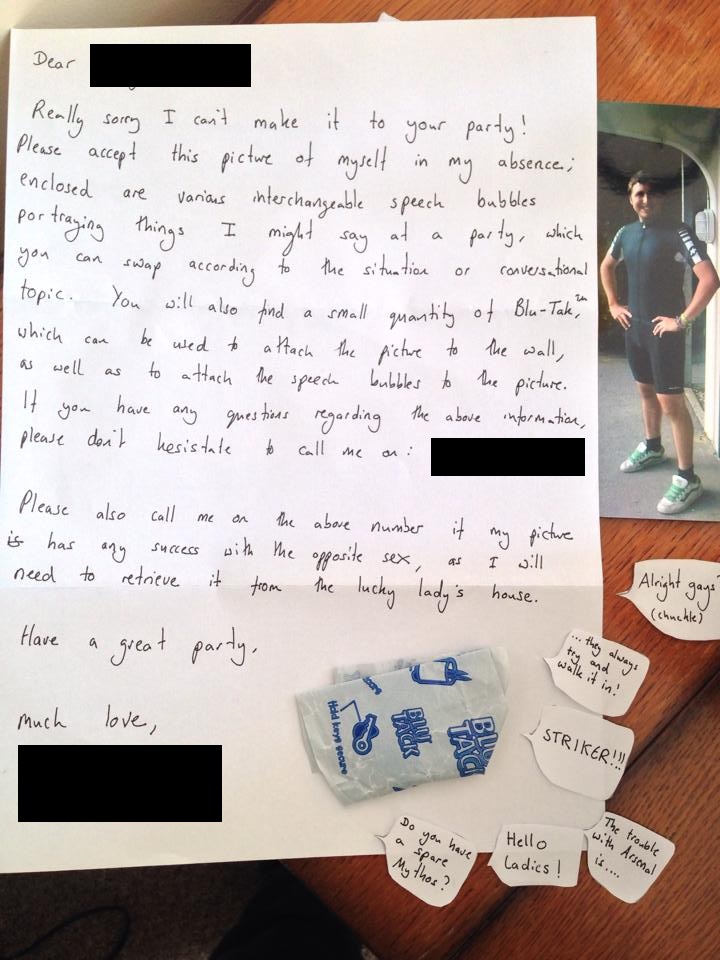 Dear
Really sorry I can't make it to your party!
Please accept this picture of myself in my absence;
enclosed are various interchangeable speech bubbles
portraying things I might say at a party, which
you can swap according to the situation or conversational
topic. You will also find a small quantity of Blu-Tak,™
which can be used to attach the picture to the wall,
as well as to attach the speech bubbles to the picture.
If you have any questions regarding the above information,
please don't hesistate to call me on:
Please also call me on the above number if my picture
is has any success with the opposite sex, as I will
need to retrieve it from the lucky lady's house.
Have a great party.
Much love,
Hold keys secure
BLU
TACK
BLU
TAC
Alright gays?
(chuckle)
...they always
try and
walk it in!
STRIKER!!!
Do you have
a spare
Mythos?
Hello
Ladies!
The trouble
with Arsenal
is....